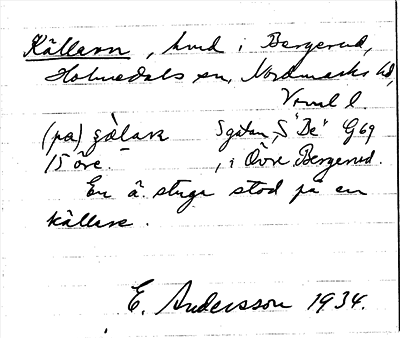 Källarn, hmd i Bergerud,
Holmedals sn, Nordmarks hd,
Vrml l.
(på) gälarn Sgatan, S "De" G 69
15 öre. , i Övre Bergerud.
En ä. stuga stod på en
källare.
E. Andersson 1934.